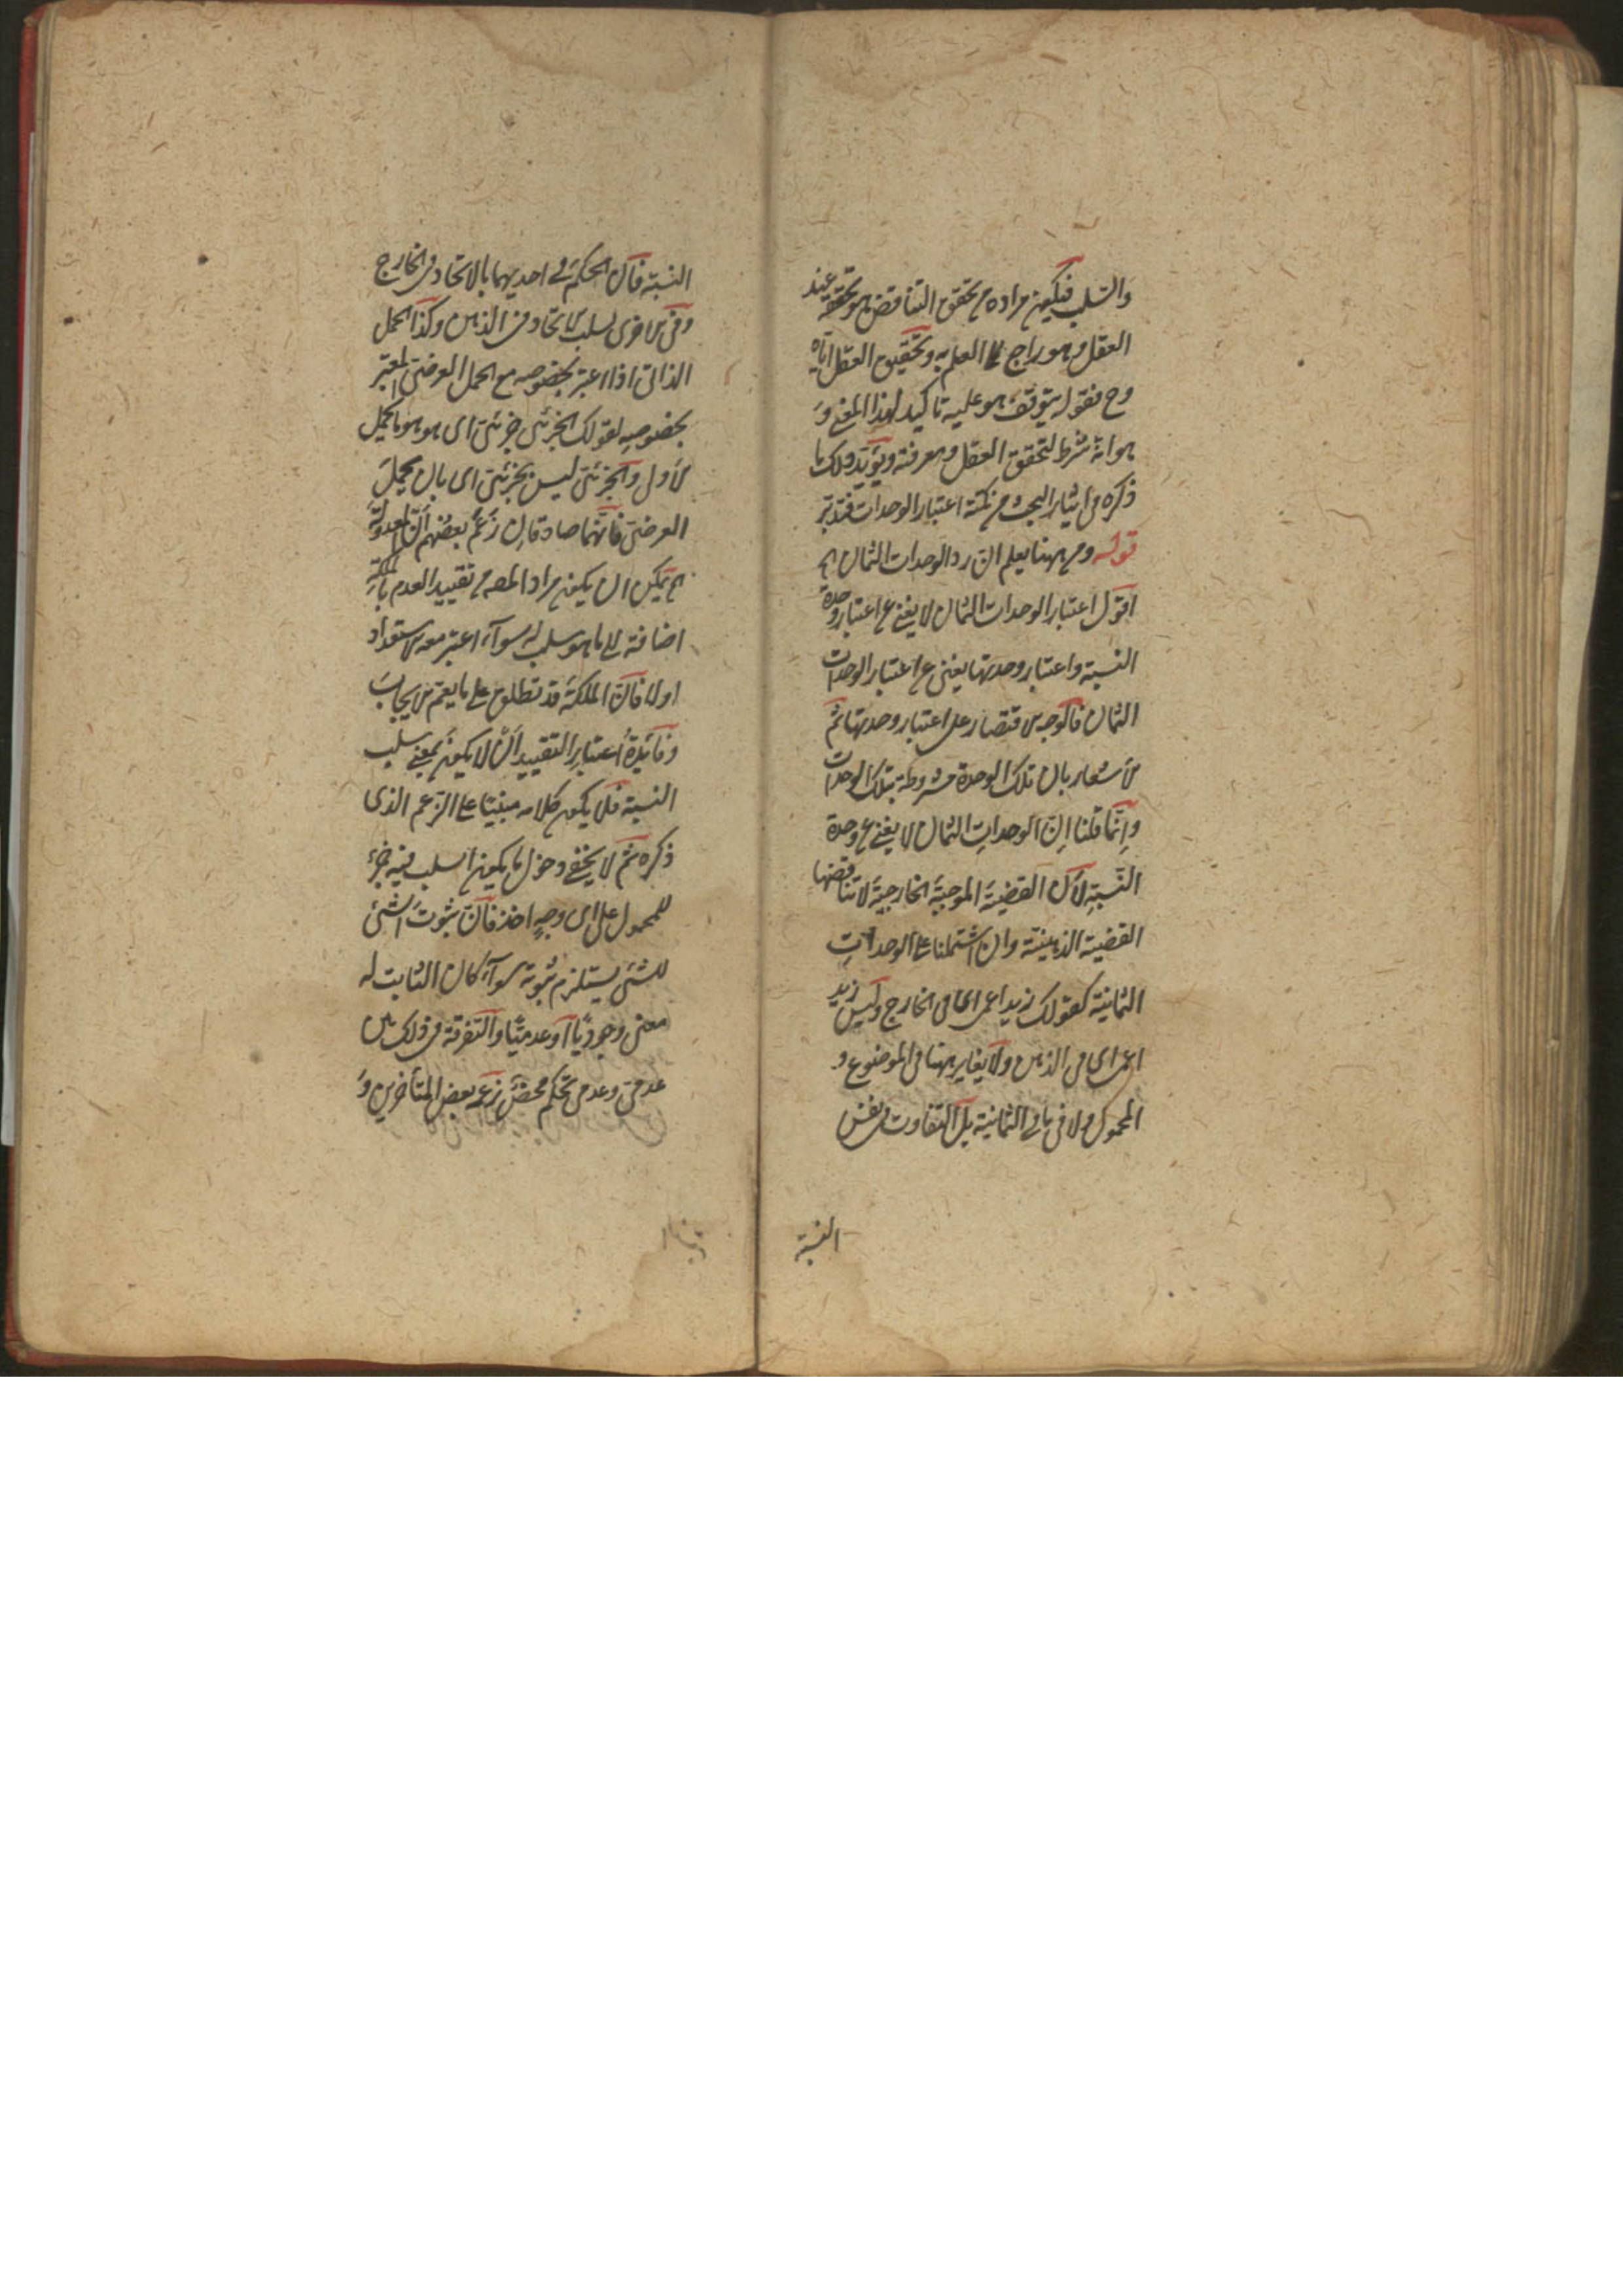 والسلب فيكون مراده من تحقق التناقض هو تحققه عند
العقل وهو راجع الى العلم به وتحقيق العقل اياه
وح فقوله يتوقف هو عليه تاكيد لهذا المعنى و
هو انه شرط لتحقق العقل ومعرفته ويؤيد ذلك ما
ذكره فى اثناء البحث من نكتة اعتبار الوحدات فتدبر
قوله ومن ههنا يعلم ان رد الوحدات الثمان الخ
اقول اعتبار الوحدات الثمان لا يغنى عن اعتبار وحدة
النسبة واعتبار وحدتها يغنى عن اعتبار الوحدات
الثمان فالوجه الاقتصار على اعتبار وحدتها ثم
الاشعار بان تلك الوحدة مشروطة بتلك الوحدات
وانما قلنا ان الوحدات الثمان لا يغنى عن وحدة
النسبة لان القضية الموجبة الخارجية لا تناقضها
القضية الذهنية وان اشتملتا على الوحدات
الثمانية كقولك زيد اعمى اى فى الخارج وليس زيد
اعمى اى فى الذهن ولا تغاير ههنا فى الموضوع و
المحمول ولا فى باقى الثمانية بل التفاوت فى نفس
النسبة
النسبة فان الحكم فى احديهما بالاتحاد فى الخارج
وفى الاخرى لسلب الاتحاد فى الذهن وكذا الحمل
الذاتى اذا اعتبر بخصوصه مع الحمل العرضى المعتبر
بخصوصه كقولك الجزئى جزئى اى هو هو بالحمل
الاول والجزئى ليس بجزئى اى بالحمل
العرضى فانهما صادقان زعم بعضهم ان المعدولة
الخ يمكن ان يكون مراد المصه من تقييد العدم بالملكة
اضافته الى ما هو سلب له سواء اعتبر معه الاستعداد
اولا فان الملكة قد تطلق على ما يعم الايجاب
وفائدة اعتبار التقييد ان لا يكون بمعنى سلب
النسبة فلا يكون كلامه مبنيا على الزعم الذى
ذكره ثم لا يخفى دخول ما يكون السلب فيه جزء
للمحمول على اى وجه اخذ فان ثبوت الشئ
للشئ يستلزم ثبوته سواء كان الثابت له
معنى وجوديا او عدميا والتفرقة فى ذلك بين
عدمى وعدمى تحكم محض زعم بعض المتأخرين و